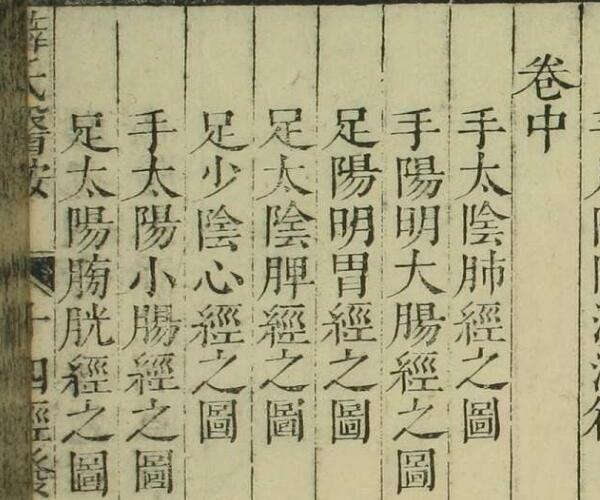 卷中
手太陰肺經之圖
手陽明大腸經之圖
足陽明胃經之圖
足太陰脾經之圖
足少陰心經之圖
手太陽小腸經之圖
足太陽膀胱經之圖
薛氏醫按 十四經發